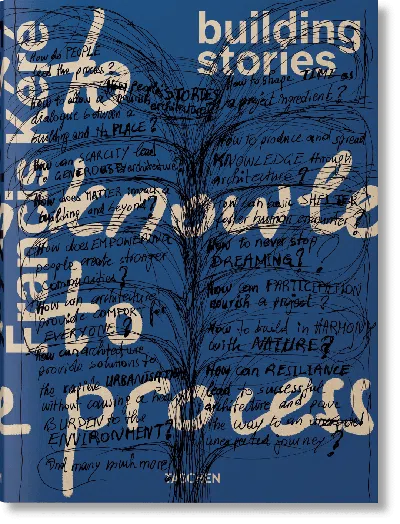 building
stories
Francis Kéré
How do PEOPLE
lead the process?
How people's STORIES
How to shape TIME as
a project ingredient?
How to allow a
dialogue between a
building and its PLACE?
How to produce and spread
KNOWLEDGE through
architecture?
How can SCARCITY lead
to GENEROUS architecture?
How does MATTER impact a
building and beyond?
How can basic SHELTER
foster human encounter?
How to never stop
DREAMING?
How does EMPOWERING
people create stronger
communities?
How can PARTICIPATION
nourish a project?
How can architecture
provide COMFORT for
EVERYONE?
How to build in HARMONY
with NATURE?
How can architecture
provide solutions for
the rapid URBANISATION
without causing a heavy
BURDEN to the
ENVIRONMENT?
How can RESILIANCE
lead to successful
architecture and pave
the way to an
unexpected journey?
And many much more
process
TASCHEN